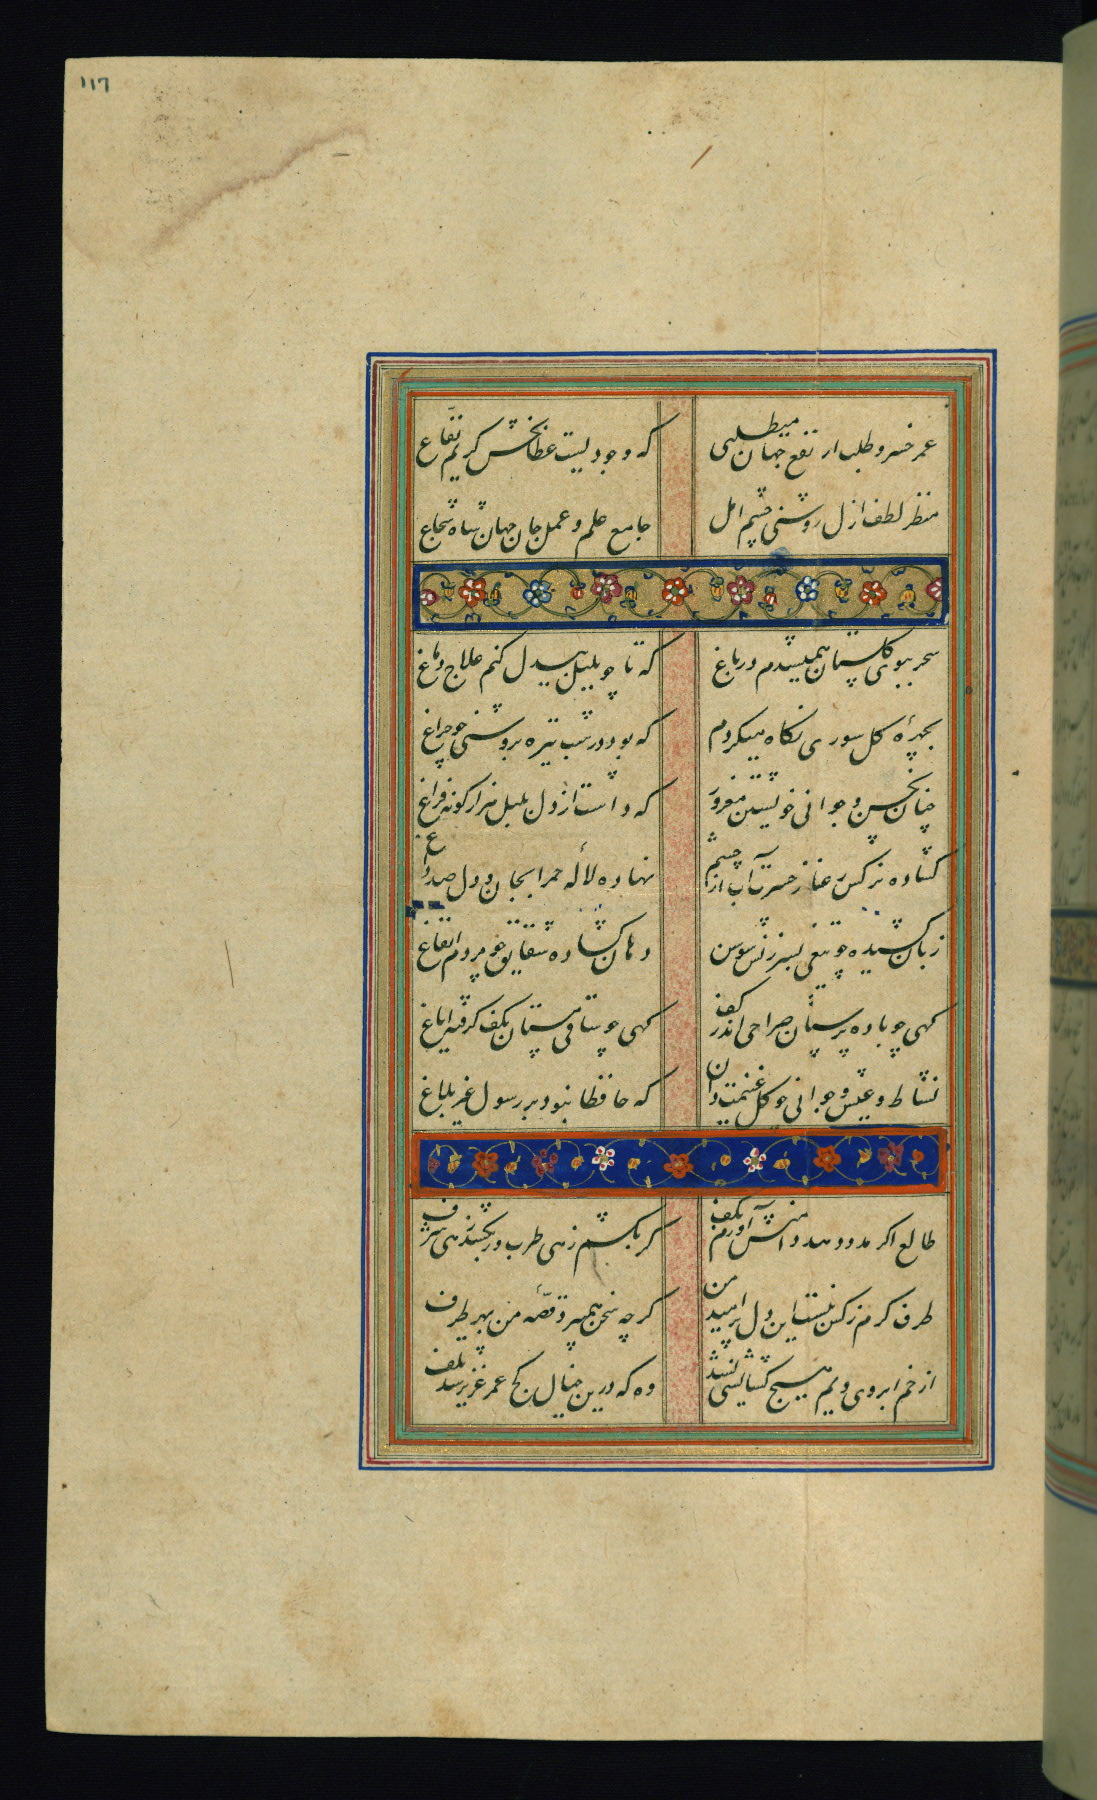 ١١٦
عمر خسرو طلب ار نفع جهان میطلبی
که وجودیست عطابخش کریم نفاع
مظهر لطف ازل روشنی چشم امل
جامع علم و عمل جان جهان شاه شجاع
سحر ببوی کلستان همیشدم در باغ
که تا چو بلبل بیدل کنم علاج دماغ
بچهرهٔ کل سوری نکاه میکردم
که بود در شب تیره بروشنی چو چراغ
چنان بحسن و جوانی خویشتن مغرور
که داشت از دل بلبل هزار کونه فراغ
کشاده نرکس رعنا ز حسرت آب از چشم
نهاده لاله حمرا بجان و دل صد داغ
زبان کشیده چو تیغی بسرزنش سوسن
دهان کشاده شقایق چو مردم ایغاغ
کهی چو باده پرستان صراحی اندر کف
کهی چو ساقی مستان بکف کرفته ایاغ
نشاط و عیش و جوانی چو کل غنیمت دان
که حافظا نبود بر رسول غیر بلاغ
طالع اکر مدد دهد دامنش آورم بکف
کر بکشم زهی طرب ور بکشد زهی شرف
طرف کرم ز کس نبست این دل پر امید من
کر چه سخن همیبرد قصه من بهر طرف
از خم ابروی ویم هیچ کشایشی نشد
وه که درین خیال کج عمر عزیز شد تلف